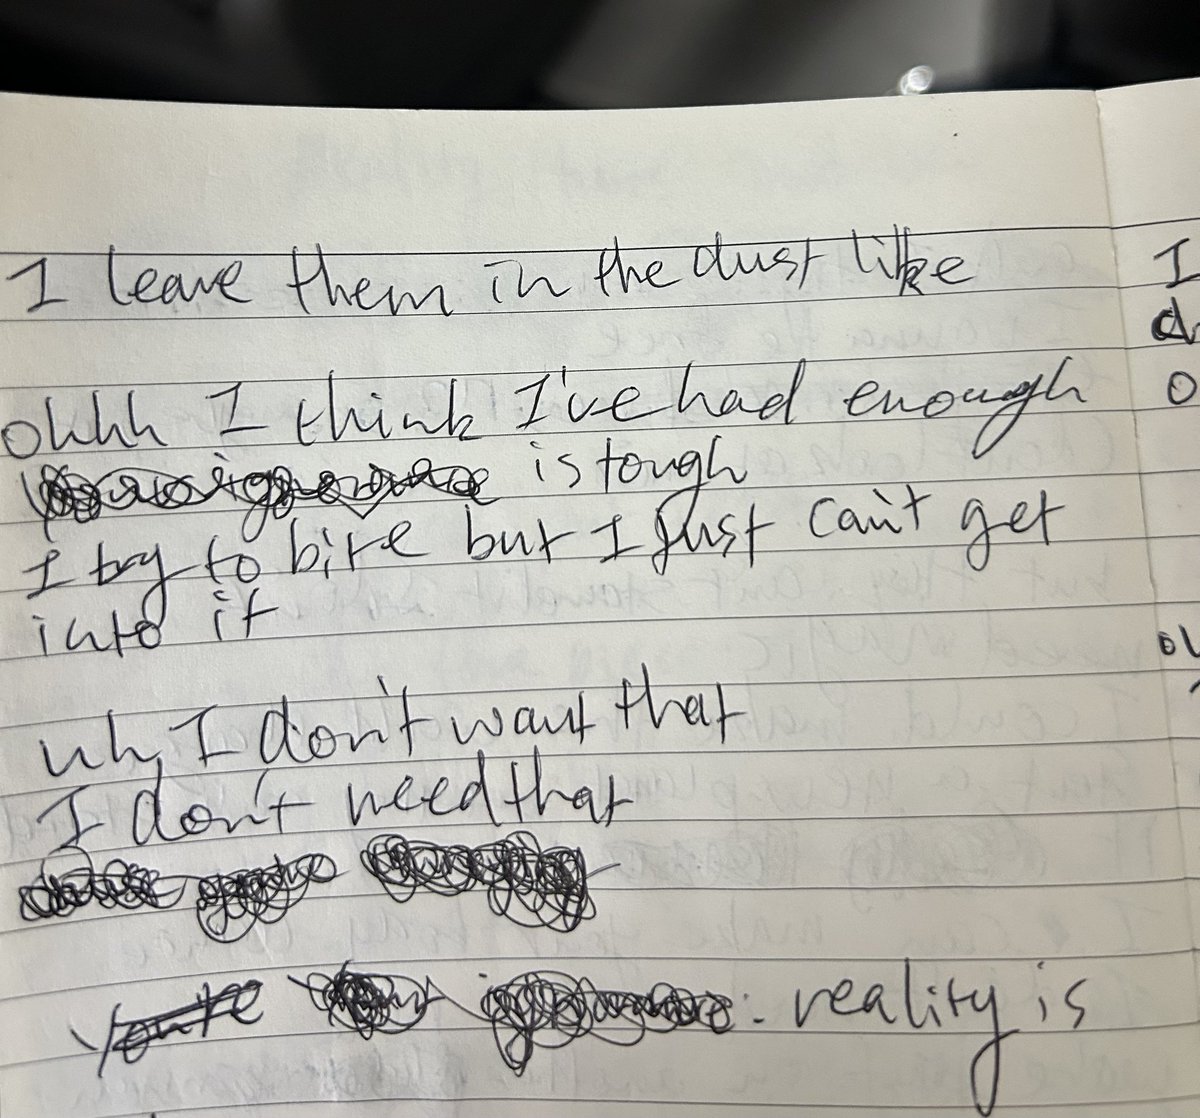 I leave them in the dust like
ohhh I think I've had enough
is tough
I try to bite but I just can't get
into it
uh, I don't want that
I don't need that
You're : reality is
I
d
o